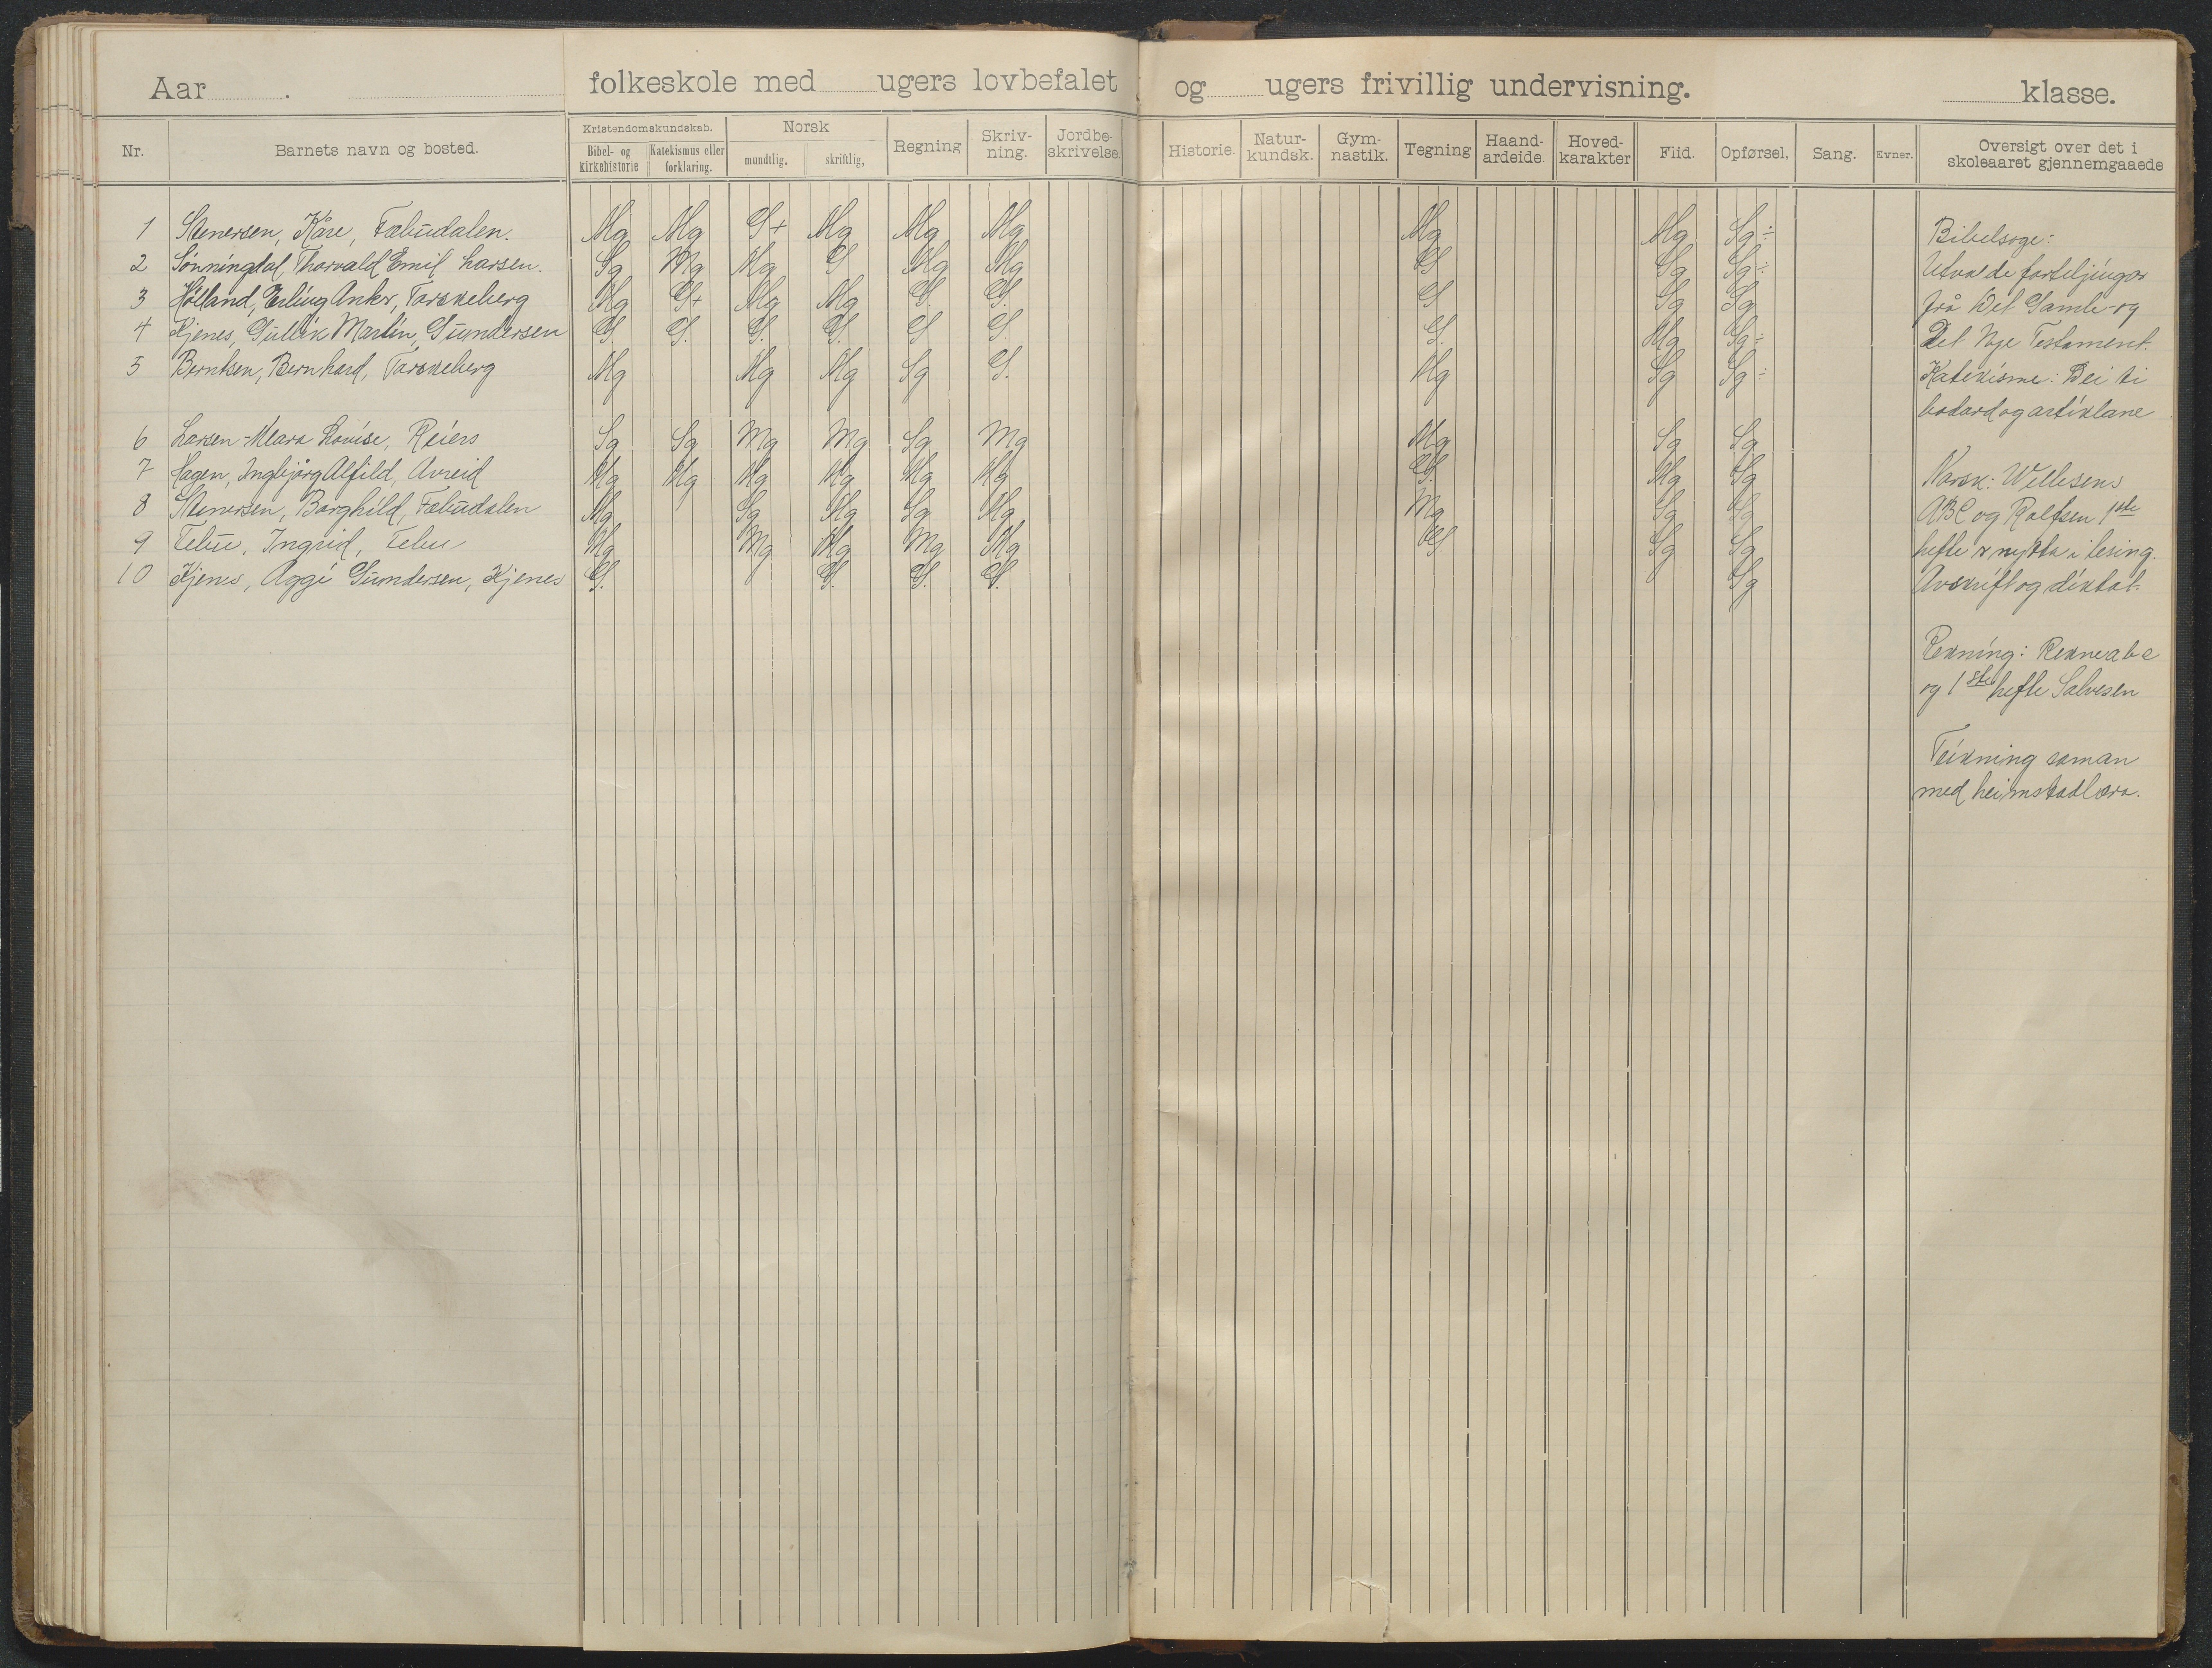 Aar . folkeskole med ugers lovbefalet og ugers frivillig undervisning. klasse.
Nr. Barnets navn og bosted. Kristendomskundskab. Bibel- og kirkehistorie Katekismus eller forklaring. Norsk mundtlig. skriftlig, Regning Skriv-ning. Jordbe-skrivelse. Historie. Natur-kundsk. Gym-nastik. Tegning Haand-arbeide. Hoved-karakter Flid. Opførsel. Sang. Evner. Oversigt over det i skoleaaret gjennemgaaede
1 Stenersen, Kåre, Fæbudalen. Mg Mg G+ Mg Mg Mg Mg Mg Sg÷
2 Sønningdal, Thorvald Emil Larsen. Sg Mg Mg G Mg Mg G Sg Sg÷
3 Hølland, Erling Anker, Torskeberg Mg G+ Mg Mg G. G. G Sg Sg
4 Kjenes, Gullik Martin, Gundersen G G. G. G. G G G. Mg Sg÷
5 Berntsen, Bernhard, Torskeberg Mg Mg Mg Sg G. Mg Sg Sg÷
6 Larsen - Klara Lovise, Reiers Sg Sg Mg Mg Sg Mg Mg Sg Sg
7 Hagen, Ingebjørg Alfild, Avreid Mg Mg Mg Mg Mg Mg G. Mg Sg
8 Stenersen, Borghild, Fæbudalen Mg Sg Mg Sg Mg Mg Sg Sg
9 Tebu, Ingrid, Tebu Mg Mg Mg Mg Mg G. Sg Sg
10 Kjenes, Aggi Gundersen, Kjenes G. G. G. G. Sg
Bibelsoge:
Utvalde forteljingor
frå Det Gamle- og
Det Nye Testament.
Katekisme: Dei ti
bodord og artiklane
Norsk: Willesens
ABC og Rolfsen 1ste
hefte er nytta i lesing.
Avskrift og diktat.
Rekning: Rekneabc
og 1ste hefte Salvesen
Teikning saman
med heimstadlæra.